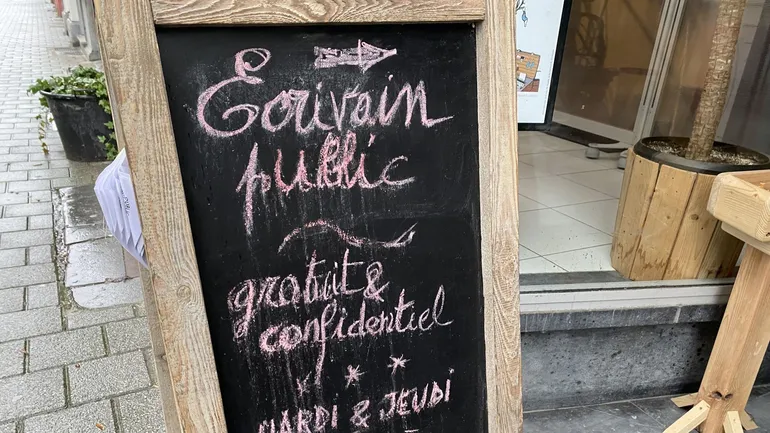 Écrivain
public
gratuit &
confidentiel
MARDI & JEUDI